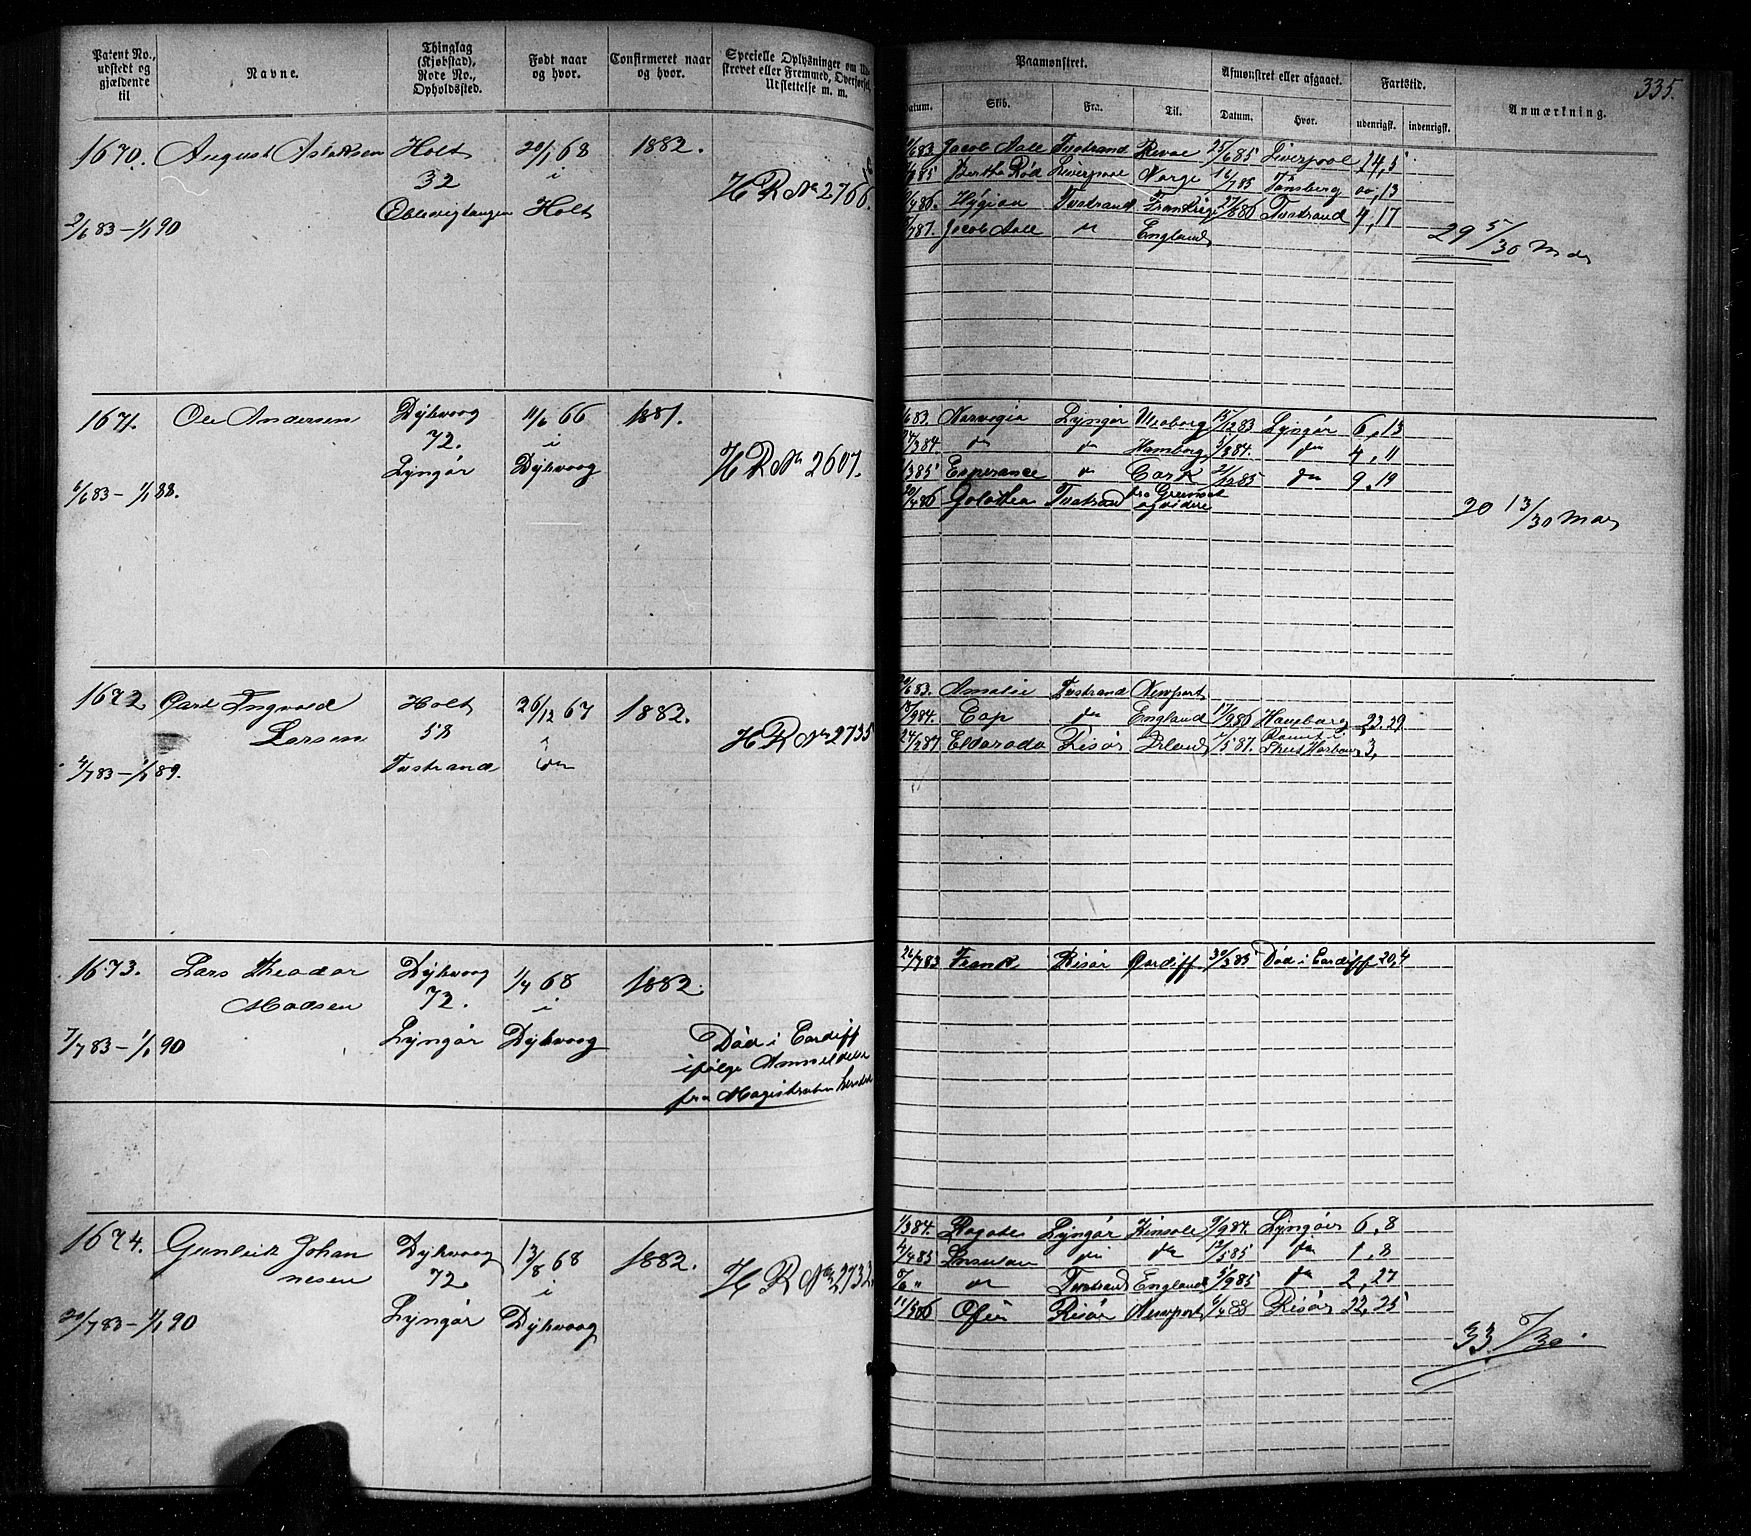 335.
Patent No., udstedt og gjældende til
Navne.
Thinglag (Kjøbstad), Rode No., Opholdssted.
Født naar og hvor.
Confirmeret naar og hvor.
Specielle Oplysninger om Ud- strevet eller Fremmed, Overførsel, Udslettelse m. m.
Paamønstret.
Afmønstret eller afgaaet.
Fartstid.
Anmærkning.
Datum. Skib. Fra. Til. Datum. Hvor. udenrigsk. indenrigsk.
1670. August Aslaksen Holt 20/1 68 1882.
32 i
Holt
2/6 83 – 1/1 90
H R No 2766.
83 Jacob Aall Tvestrand 25/6 85 Liverpool 14, 5
85 Bertha Rød Liverpool Norge 16/7 85 Tønsberg 00, 13
86. Hygiea Tvestrand Frankrig 27/6 86 Tvestrand 4, 17
87. Jacob Aall England
29 5/30 Mdr
1671. Ole Andersen Dybvaag 11/6 66 1881.
72. i
Lyngør Dybvaag
6/6 83 – 1/1 88.
H R No 2607.
83. Norvegia Lyngør 15/12 83 Lyngør 6, 13
24/3 84 do do Hamborg 84. do 4, 11
85 Esperance do Cork 21/12 85 do 9, 19
20/4 86 Tvestrand og videre
20 13/30 Mdr
1672. Carl Ingvald Larsen Holt 26/12 67 1882.
58 i
Tvestrand do
4/7 83 – 1/1 89.
H R No 2735
83. Amalie Tvestrand Newport
84. Cap do England 17/9 86 Hamborg 23, 29
24/2 87 Eldorado Risør Irland 87. 3,
1673. Lars Theodor Madsen Dybvaag 1/4 68 1882.
72. i
Lyngør Dybvaag
7/7 83 – 1/1 90
Død i Cardiff
ifølge Anmeldelse
fra Magistraten
26/7 83 Frank Risør Cardiff 30/3 85 Død i Cardiff 20, 4
1674. Gunleik Johannesen Dybvaag 13/8 68 1882.
72. i
Lyngør Dybvaag
20/7 83 – 1/1 90
H R No 2733.
1/3 84. Lyngør Kinsale 9/9 84. Lyngør 6, 8
4/4 85 do do 12/5 85 do 1, 8
do Tvestrand England 5/9 85 do 2, 27
11/5 86 Ofir Risør Newport 6/4 88 Risør 22, 25
33. 7/30